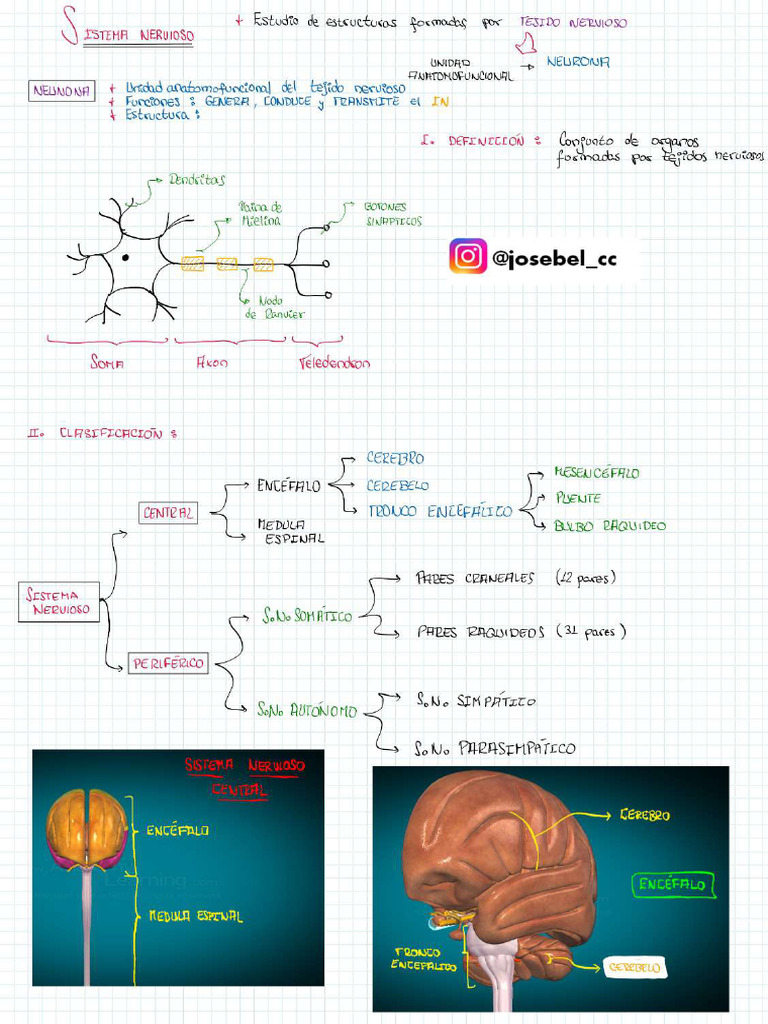 SISTEMA NERVIOSO
+ Estudio de estructuras formadas por TEJIDO NERVIOSO
UNIDAD ANATOMOFUNCIONAL → NEURONA
NEURONA
+ Unidad anatomofuncional del tejido nervioso
+ Funciones: GENERA, CONDUCE y TRANSMITE el IN
+ Estructura:
I. DEFINICIÓN: Conjunto de organos
formadas por tejidos nerviosos
Dendritas
Vaina de
Mielina
BOTONES
SINAPTICOS
@josebel_cc
Nodo
de Ranvier
SOMA
Axon
Teledendron
II. CLASIFICACIÓN:
CEREBRO
ENCÉFALO
CEREBELO
MESENCÉFALO
CENTRAL
TRONCO ENCEFÁLICO
PUENTE
MEDULA
ESPINAL
BULBO RAQUIDEO
SISTEMA
NERVIOSO
PARES CRANEALES (12 pares)
S.N. SOMÁTICO
PARES RAQUIDEOS (31 pares)
PERIFÉRICO
S.N. SIMPÁTICO
S.N. AUTÓNOMO
S.N. PARASIMPÁTICO
SISTEMA NERVIOSO
CENTRAL
ENCÉFALO
Learning
MEDULA ESPINAL
CEREBRO
ENCÉFALO
TRONCO
ENCEFÁLICO
CEREBELO